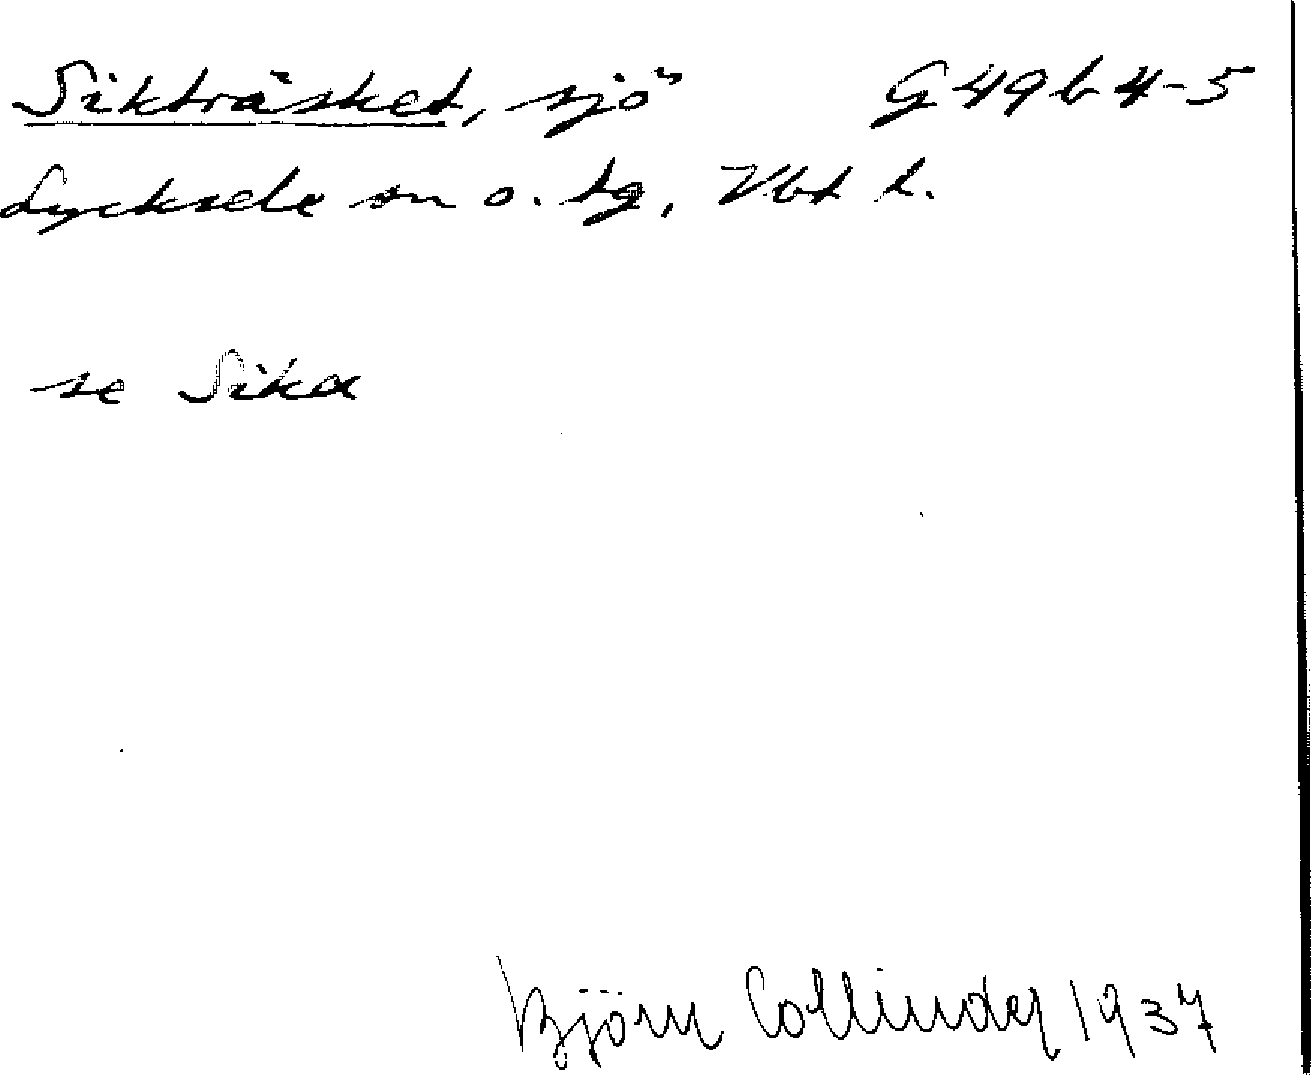 Sikträsket, sjö G 49 b 4-5
Lycksele sn o. tg, Vbt l.
se Sika
Björn Collinder 1937